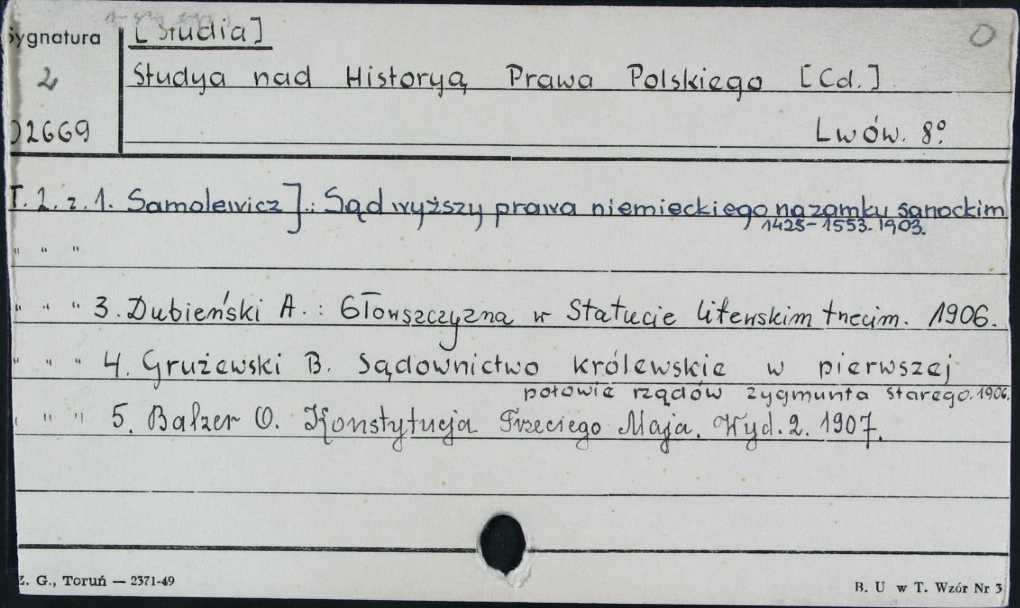 [Studia]
Sygnatura
Studya nad Historyą Prawa Polskiego [Cd.]
2
02669
Lwów. 8º
T. 2. z. 1. Samolewicz J.: Sąd wyższy prawa niemieckiego na zamku sanockim
1425-1553. 1903.
" " "
" " " 3. Dubieński A. : Głowszczyzna w Statucie litewskim trzecim. 1906.
" " " 4. Grużewski B. Sądownictwo królewskie w pierwszej
połowie rządów Zygmunta Starego. 1906.
" " " 5. Balzer O. Konstytucja Trzeciego Maja. Wyd. 2. 1907.
Z. G., Toruń — 2371-49
B. U w T. Wzór Nr 3